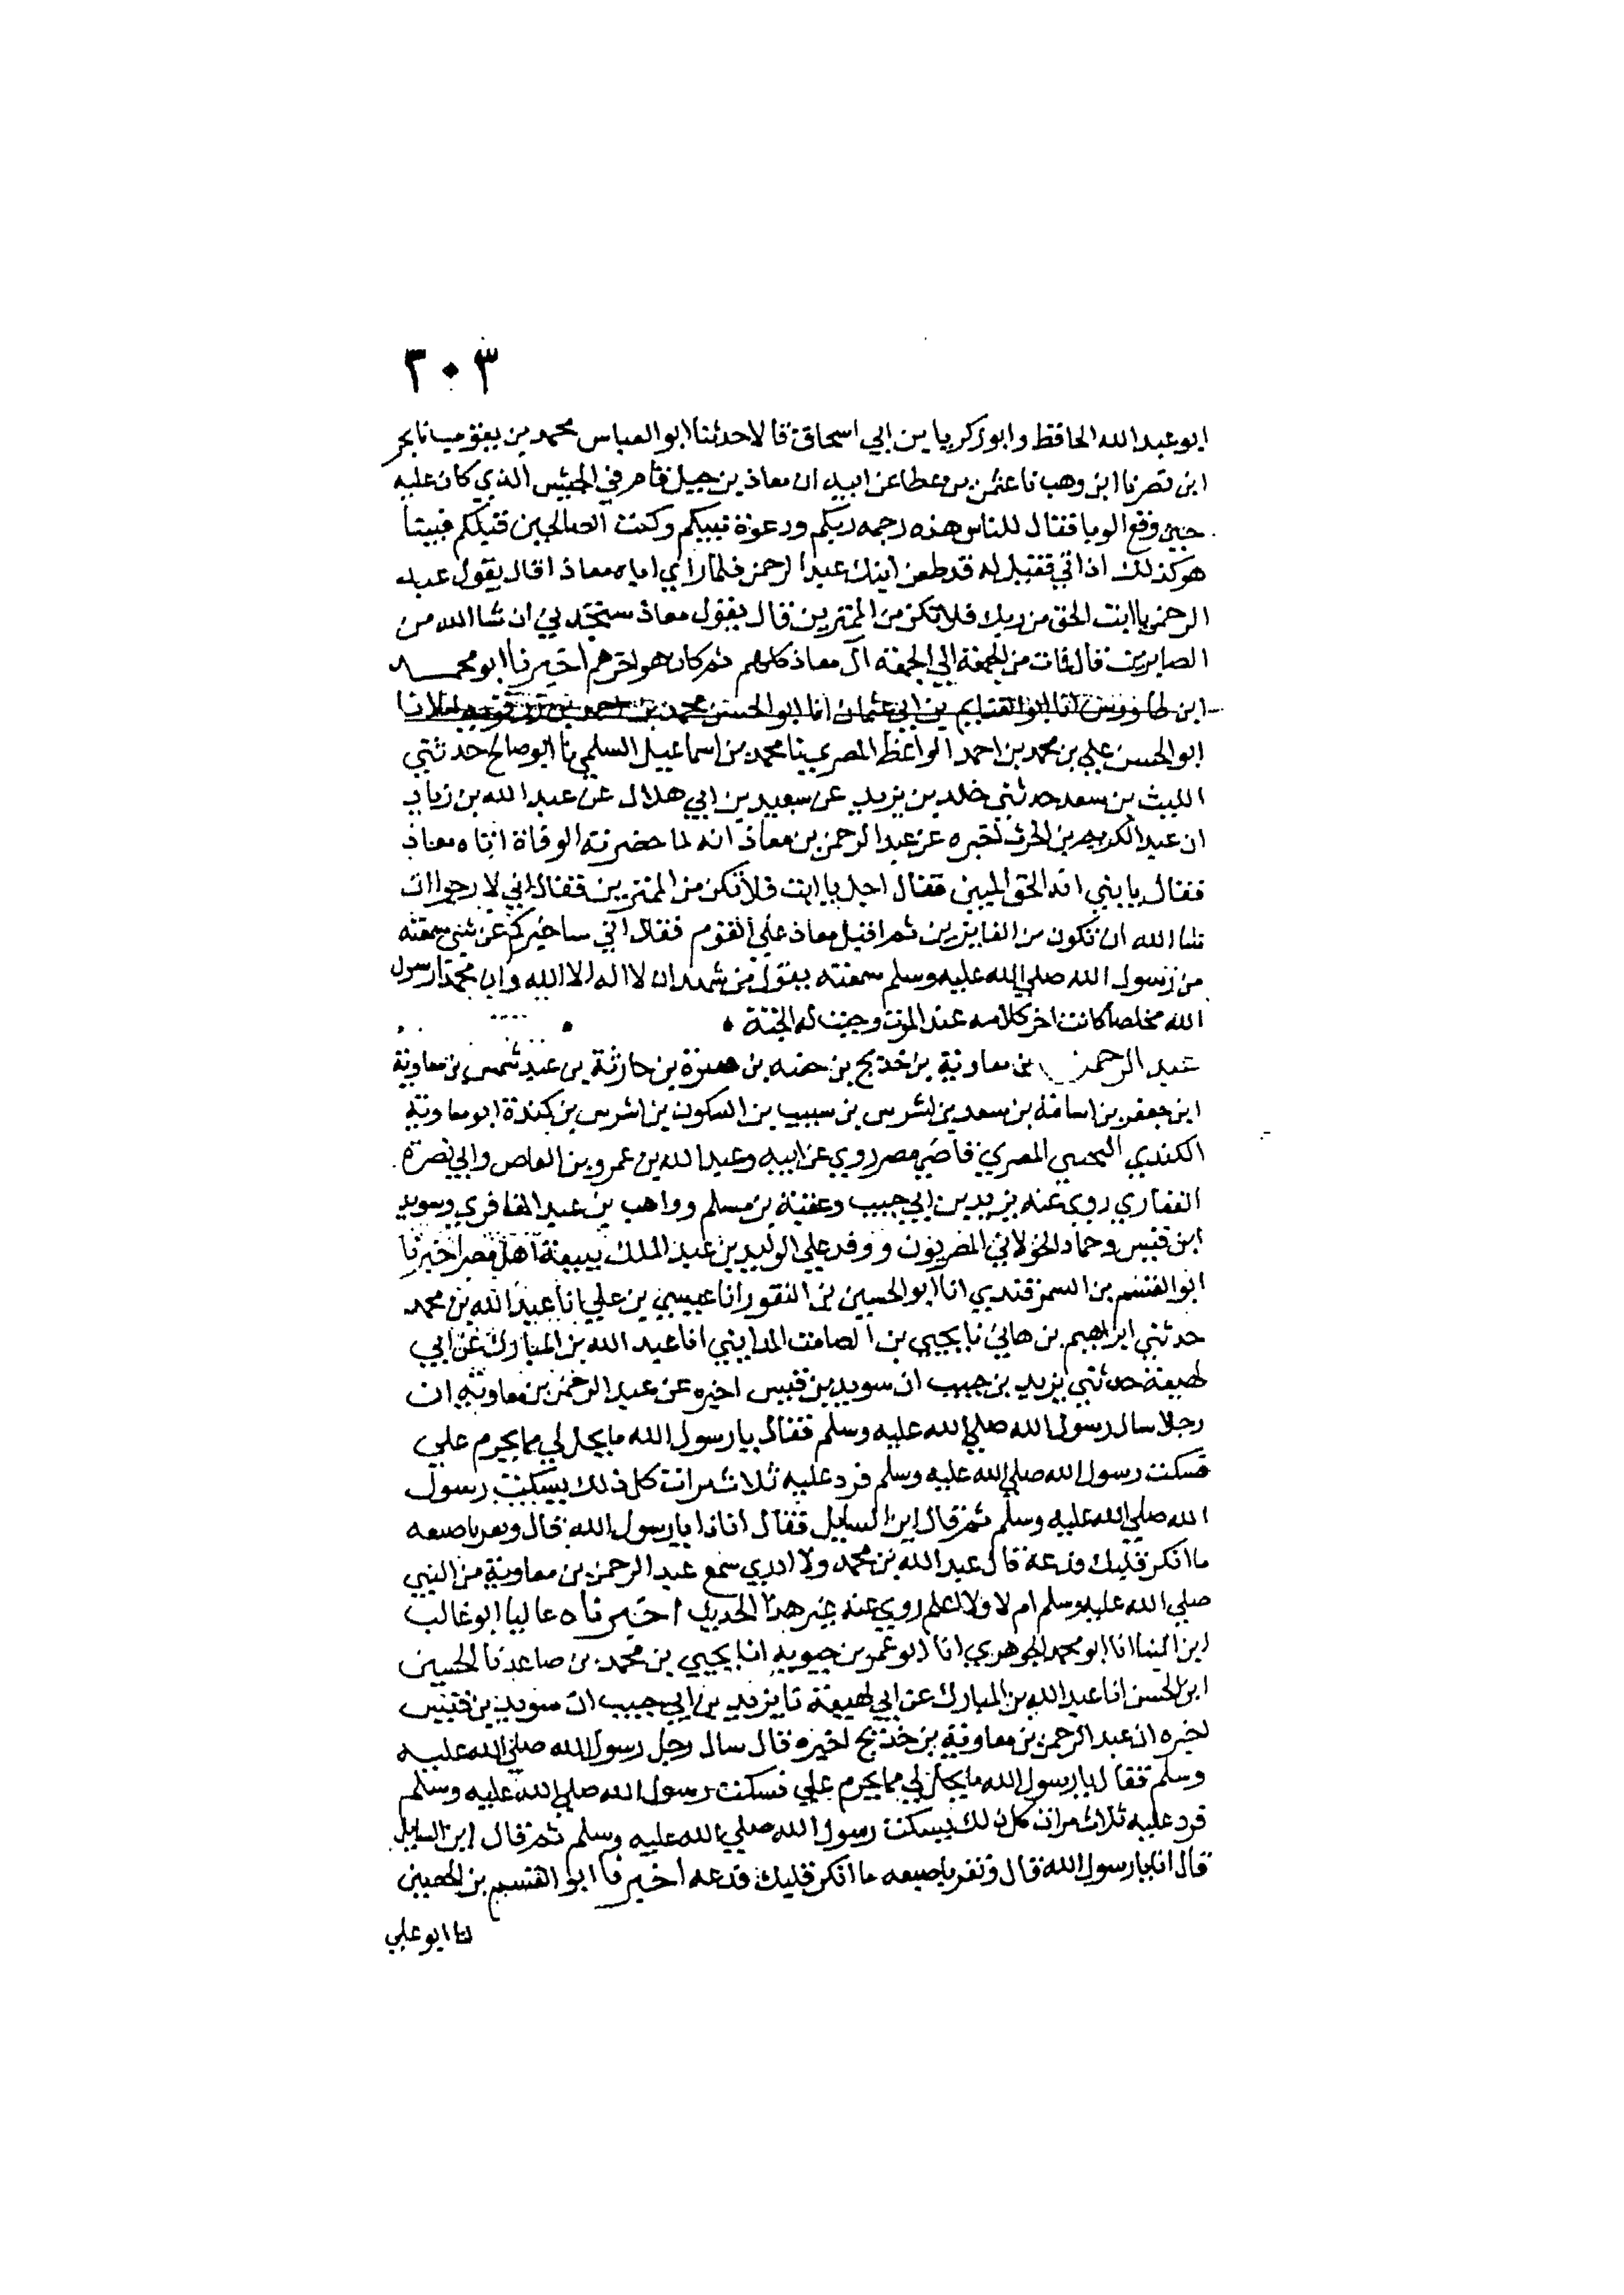 ٣٠٣
ابو عبد الله الحافظ وابو زكريا بن ابي اسحاق قالا حدثنا ابو العباس محمد بن يعقوب نا بحر
ابن نصر نا ابن وهب نا عثمن بن عطا عن ابيه ان معاذ بن جبل قام في الجيش الذي كان عليه
حين وقع الوبا فقال للناس هذه رحمه ربكم ودعوة نبيكم وكفت الصالحين قبلكم فبينا
هو كذلك اذ اتي فقيل له قد طعن ابنك عبد الرحمن فلما راي اباه معاذ ا قال يقول عبد
الرحمن يا ابت الحق من ربك فلا تكن من الممترين قال يقول معاذ ستجدني ان شا الله من
الصابرين قال فمات من الجمعة الي الجمعة آل معاذ كلهم ثم كان هو اخرهم اخبرنا ابو محمد
ابن طاووس انا ابو الغنايم بن ابي عثمان انا ابو الحسن محمد بن احمد بن
ابو الحسن علي بن محمد بن احمد الواعظ المصري نا محمد بن اسماعيل السلمي نا ابو صالح حدثني
الليث بن سعد حدثني خلد بن يزيد عن سعيد بن ابي هلال عن عبد الله بن زياد
ان عبد الكريم بن الحرث اخبره عن عبد الرحمن بن معاذ انه لما حضرته الوفاة اتاه معاذ
فقال يا بني انه الحق المبين فقال اجل يا ابت فلا تكن من الممترين فقال اني لا رجوا ان
شا الله ان تكون من الفايزين ثم اقبل معاذ علي القوم فقال اني ساخبركم عن شي سمعته
من رسول الله صلي الله عليه وسلم سمعته يقول من شهد ان لا اله الا الله وان محمدا رسول
الله مخلصا كانت اخر كلامه عند الموت وجبت له الجنة
عبد الرحمن بن معاوية بن خديج بن جفنه بن بن حارثة بن عبد شمس بن معاوية
ابن جعفر بن اسامة بن سعد بن اشرس بن شبيب بن السكون بن اشرس بن كندة ابو معاوية
الكندي التجيبي المصري قاضي مصر روي عن ابيه وعبد الله بن عمرو بن العاص وابي نصرة
الغفاري روي عنه يزيد بن ابي حبيب وعقبة بن مسلم وواهب بن عبد المعافري وسويد
ابن قيس وحماد الخولاني المصريون ووفد علي الوليد بن عبد الملك ببيعة اهل مصر اخبرنا
ابو القسم بن السمرقندي انا ابو الحسين بن النقور انا عيسي بن علي انا عبد الله بن محمد
حدثني ابراهيم بن هاني نا يحيي بن الصامت المدايني انا عبد الله بن المبارك عن ابي
لهيعة حدثني يزيد بن حبيب ان سويد بن قيس اخبره عن عبد الرحمن بن معاوية ان
رجلا سال رسول الله صلي الله عليه وسلم فقال يا رسول الله ما يحل لي مما يحرم علي
فسكت رسول الله صلي الله عليه وسلم فرد عليه ثلاث مرات كل ذلك يسكت رسول
الله صلي الله عليه وسلم ثم قال اين السايل فقال انا ذا يا رسول الله قال ونقر باصبعه
ما انكر قلبك فدعة قال عبد الله بن محمد ولا ادري سمع عبد الرحمن بن معاوية من النبي
صلي الله عليه وسلم ام لا ولا اعلم روي عنه غير هذا الحديث اخبرناه عاليا ابو غالب
ابن البنا انا ابو محمد الجوهري انا ابو عمر بن حيويه انا يحيي بن محمد بن صاعد نا الحسين
ابن الحسن انا عبد الله بن المبارك عن ابي لهيعة نا يزيد بن ابي حبيب ان سويد بن قيس
اخبره ان عبد الرحمن بن معاوية بن خديج اخبره قال سال رجل رسول الله صلي الله عليه
وسلم فقال يا رسول الله ما يحل لي مما يحرم علي فسكت رسول الله صلي الله عليه وسلم
فرد عليه ثلاث مرات كل ذلك يسكت رسول الله صلي الله عليه وسلم ثم قال اين السايل
قال انا يا رسول الله قال ونقر باصبعه ما انكر قلبك فدعه اخبرنا ابو القسم بن الحصين
انا ابو علي